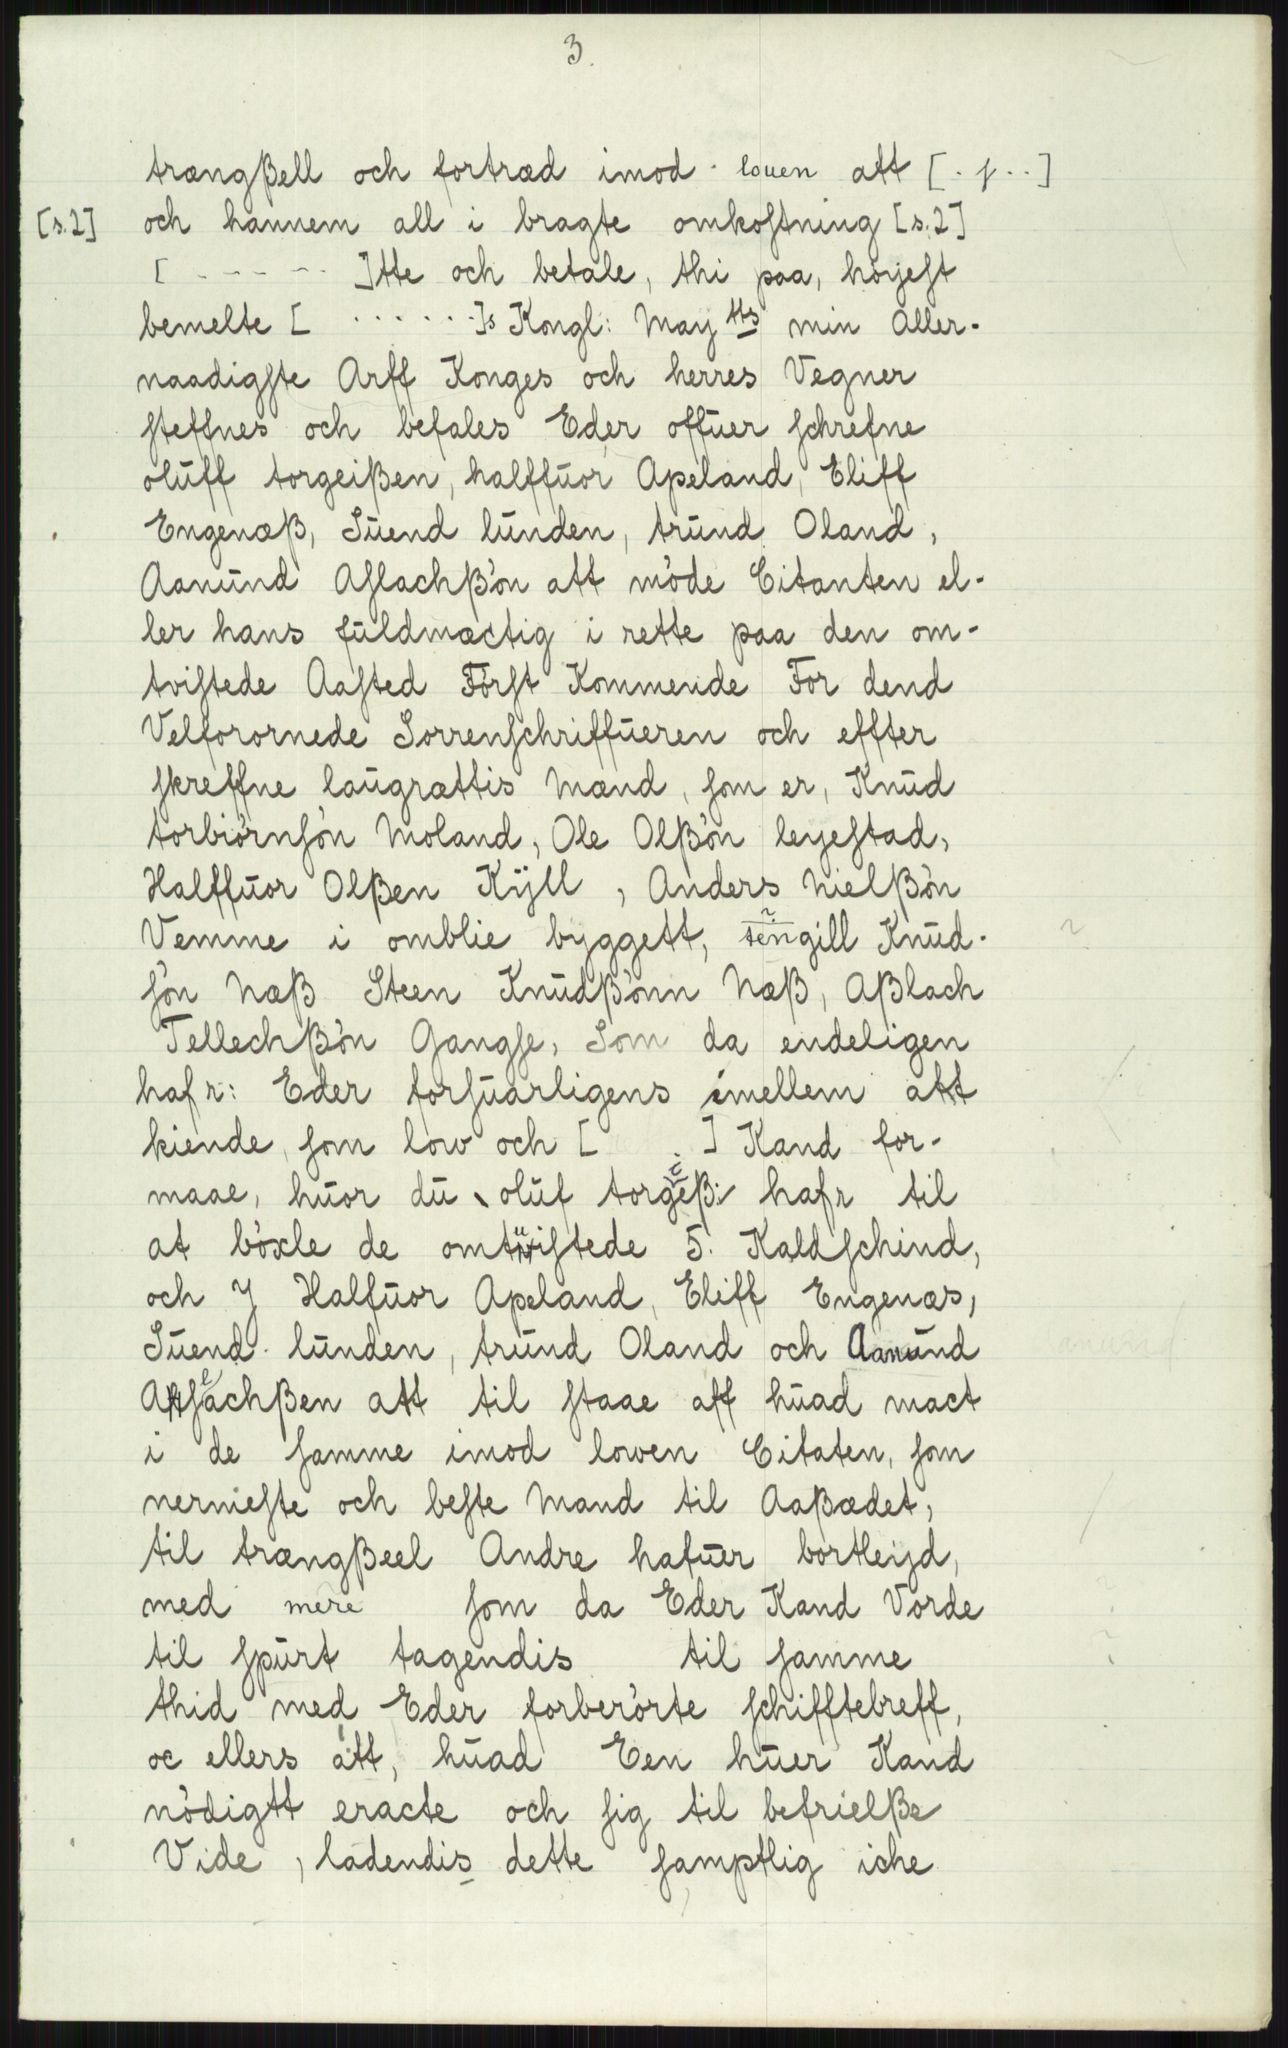 3.
trængßell och fortræd imod louen att [. f . .]
[s.2] och hannem all i bragte omkostning [s.2]
[ - - - - - ]tte och betale, thi paa, höyest
bemelte [ . . . . . . ]s Kongl: May tts min Aller-
naadigste Arff Konges och herres Vegner
steffnes och befales Eder offuer schrefne
oluff torgeißen, halffuor Apeland, Eliff
Engenæß, Suend lunden, trund Oland,
Aanund Aslachßön att möde Citanten el-
ler hans fuldmæctig i rette paa den om-
tvistede Aasted Först Kommende For dend
Velforornede Sorrenschriffueren och effter
skreffne laugrættis Mænd, som er, Knud
torbiörnsön Moland, Ole Olßön leyestad,
Halffuor Olßen Kÿll, Anders Nielßön
Vemme i omblie byggett, tengill Knud-
sön Næß Steen Knudßönn Næß, Aßlach
Tellechßön Gangse, Som da endeligen
hafr: Eder forsuarligens imellem att
kiende, som low och [ . ] Kand for-
maae, huor du oluf torgeß: hafr til
at böxle de omtuistede 5. Kaldschind,
och J Halfuor Apeland, Eliff Engenæs,
Suend lunden, trund Oland och Aanund anund
Aslachßen att til staae aff huad mact
i de samme imod lowen Citaten, som
nermeste och beste Mand til Aaßædet,
til trængßeel Andre hafuer bortleyd,
med mere som da Eder Kand Vorde
til spurt tagendis til samme
thid med Eder forberörte schifftebreff,
oc ellers att, huad Een huer Kand
nödigtt eracte och sig til befrielße
Vide, ladendis dette samptlig iche